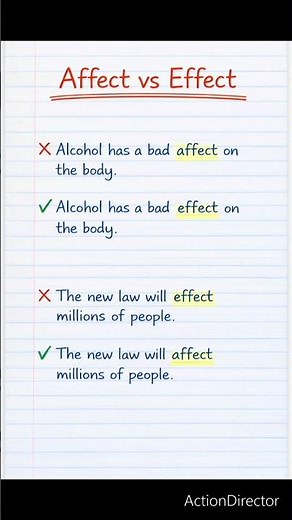 Affect vs Effect
❌ Alcohol has a bad affect on
the body.
✓ Alcohol has a bad effect on
the body.
❌ The new law will effect
millions of people.
✓ The new law will affect
millions of people.
ActionDirector